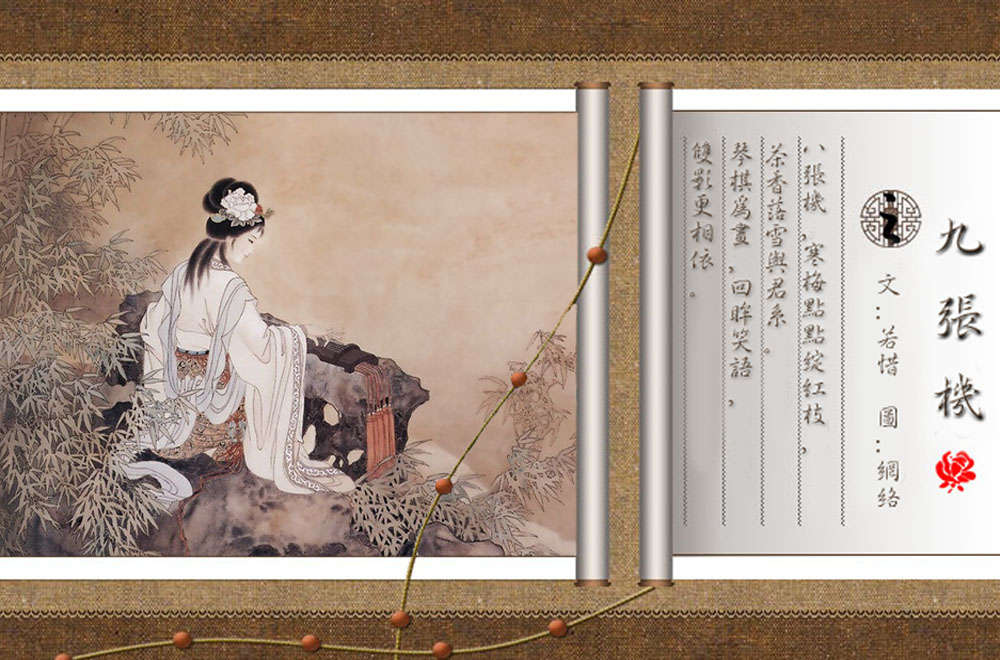 九張機
文：若惜 圖：網絡
八張機，寒梅點點綻紅枝，
茶香落雪與君系。
琴棋為畫，回眸笑語，
雙影更相依。